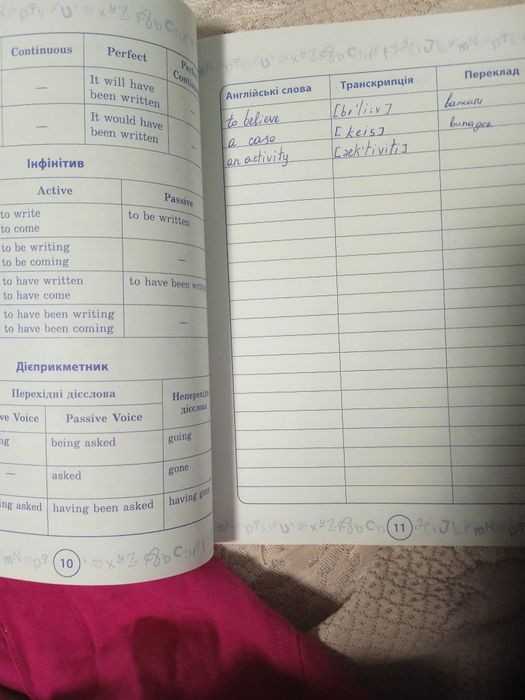 Continuous Perfect Perfect
—
It will have
been written
—
—
It would have
been written
—
Інфінітив
Active Passive
to write
to come
to be written
to be writing
to be coming
—
to have written
to have come
to have been written
to have been writing
to have been coming
—
Дієприкметник
Перехідні дієслова
Passive Voice
being asked
going
—
asked
gone
having been asked
10
Англійські слова Транскрипція Переклад
to believe [bɪ'li:v]
a case [keis] випадок
an activity [æk'tiviti]
11